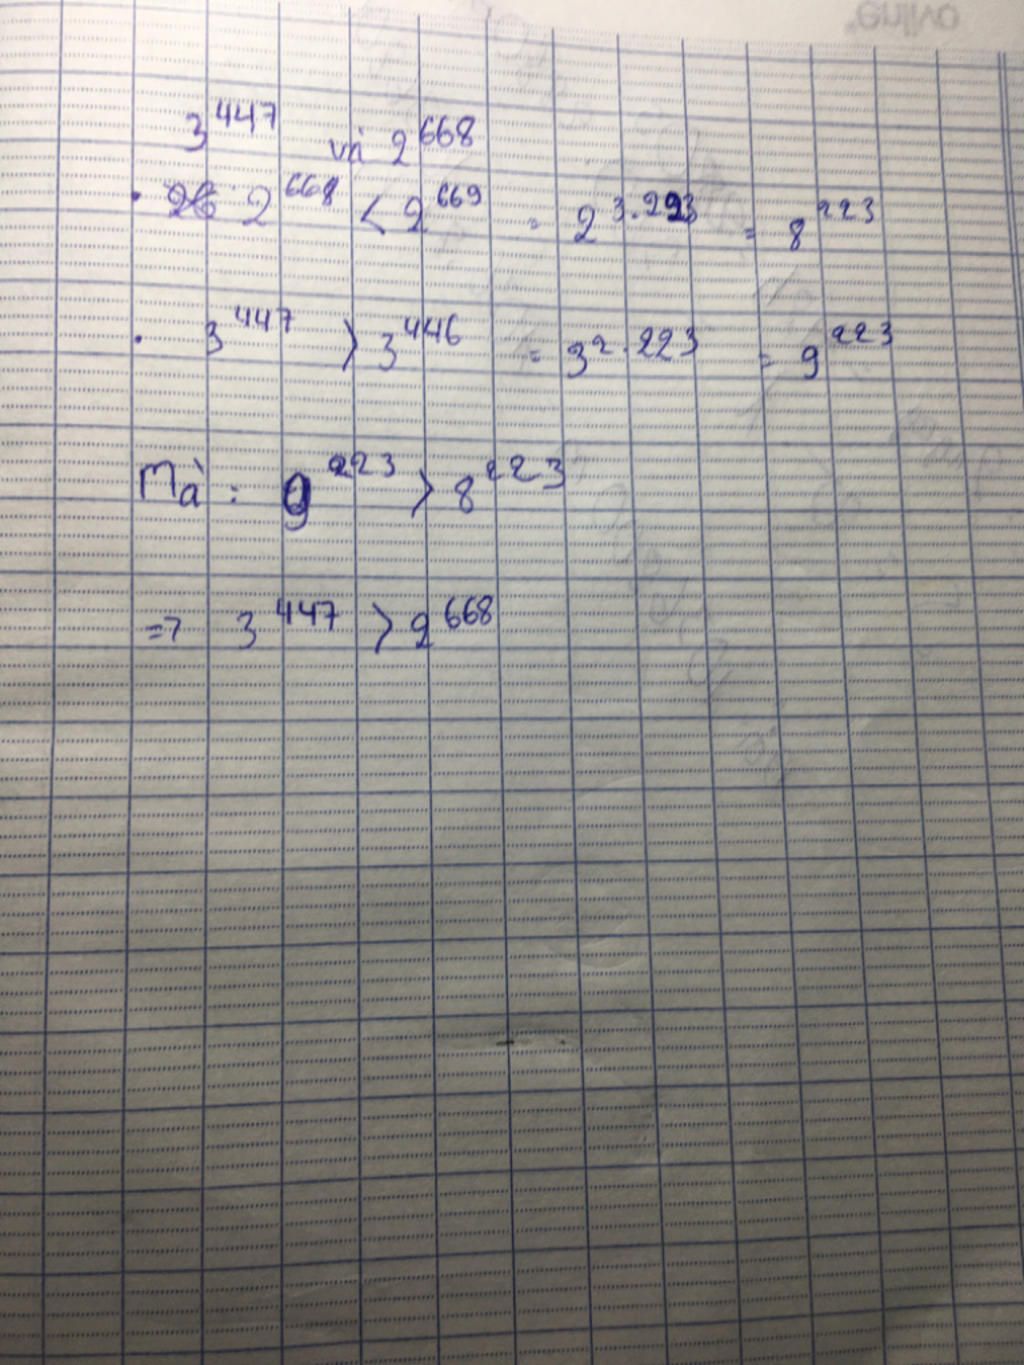 3^447 và 2^668
• 2^668 < 2^669 = 2^3.223 = 8^223
• 3^447 > 3^446 = 3^2.223 = 9^223
Mà : 9^223 > 8^223
=> 3^447 > 2^668